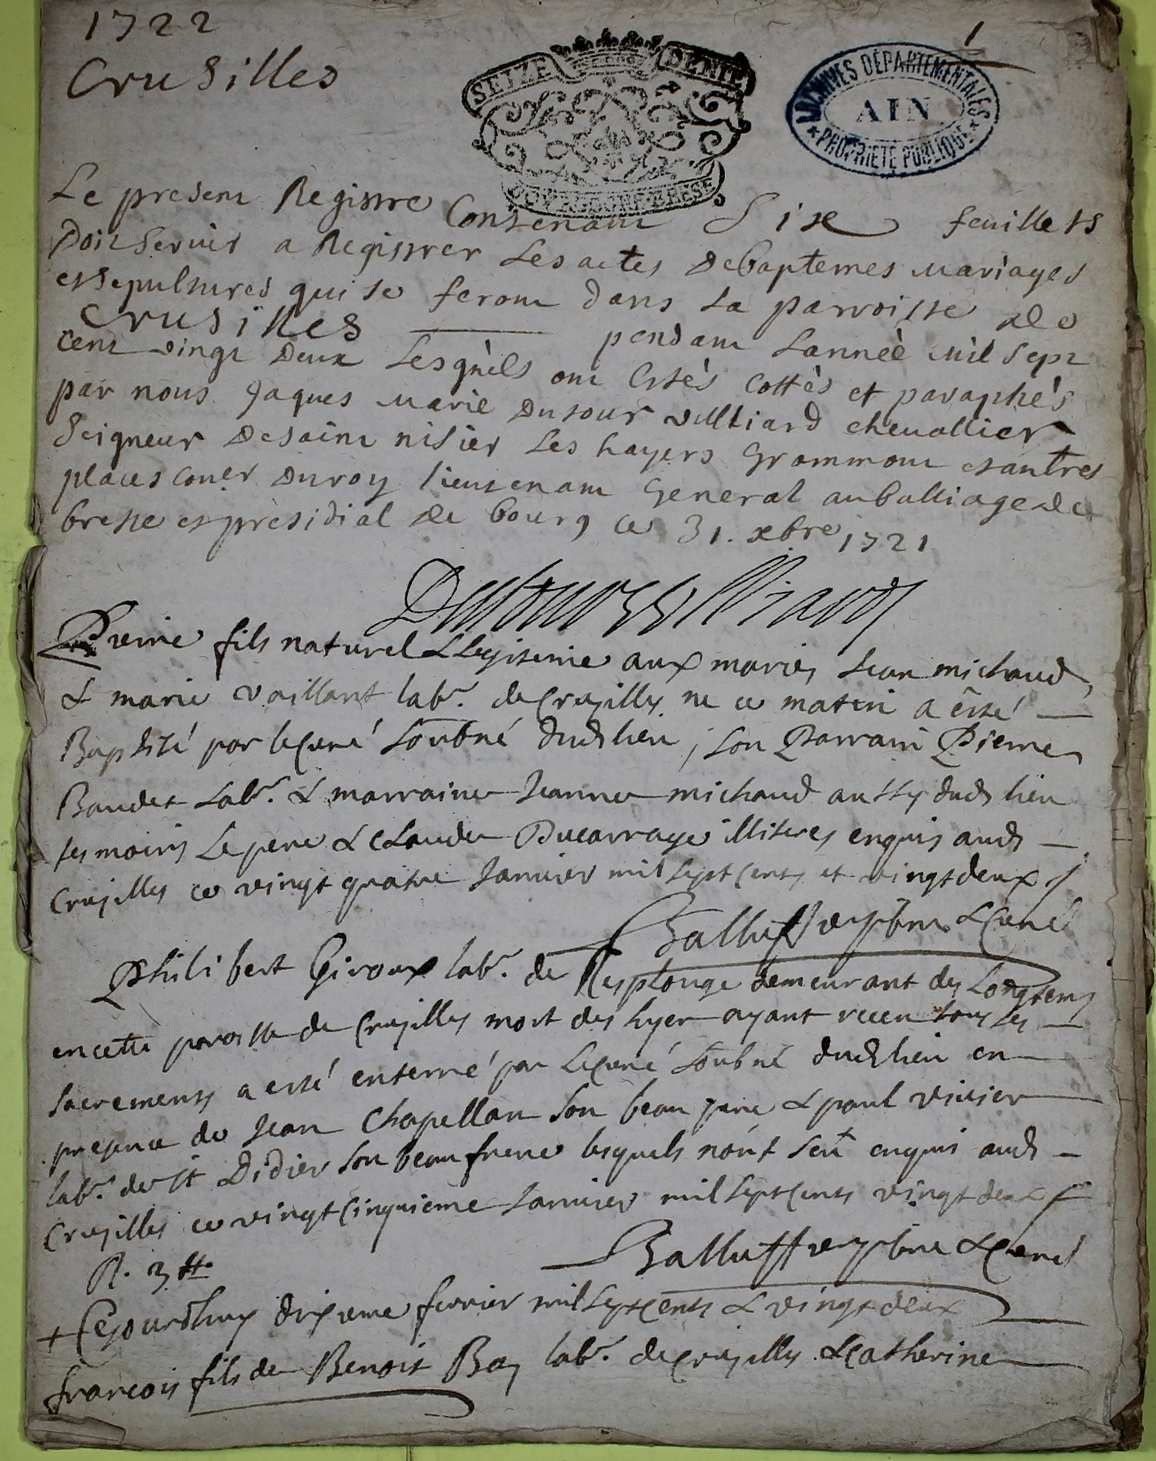 1722
1
Crusilles
SEIZE DENIE
ARCHIVES DÉPARTEMENTALES
AIN
* PROPRIÉTÉ PUBLIQUE *
Le present Registre Contenant Six feuillets
Doit servir a Registrer Les actes De Baptemes mariages
et sepultures qui se feront dans La parroisse de
Crusilles pendant Lannée mil sept
cent vingt Deux Lesquels ont Estés Cottés et paraphés
par nous Jaques Marie Dufour Villiard chevallier
Seigneur De saint nisier Les hayers Grammont et autres
places Coner Du roy lieutenant General au balliage de
bresse et presidial de bourg ce 31. xbre 1721
Dufour Villiard
Pierre fils naturel & legiteme aux mariés Jean michaud
& marie vaillant labr. de Crusilles ne ce matin a esté
Baptisé par le Curé soubné dud lieu, son Parrain Pierre
Baudet labr. & marraine Jeanne michaud aussy dud lieu
tesmoins Le pere & Claude Ducarrage illiteres enquis aud
Crusilles ce vingt quatre Janvier mil sept cents et vingt deux
Balluff ptre & Curé
Philibert Giroux labr. de Replonge demeurant des Longtems
en cette paroisse de Crusilles mort des hyer ayant receu tous les
sacrements a esté enterré par le Curé soubné dud lieu en
presence de Jean Chapellan son beau pere & paul vivier
labr. de st Didier son beau frere lesquels nont seu enquis aud
Crusilles ce vingt cinquieme Janvier mil sept cents vingt deux
Balluff ptre & Curé
R. 3 tt.
+ Cejourdhuy dixieme fevrier mil sept cents & vingt deux
francois fils de Benoit Bay labr. de Crusilles & Catherine